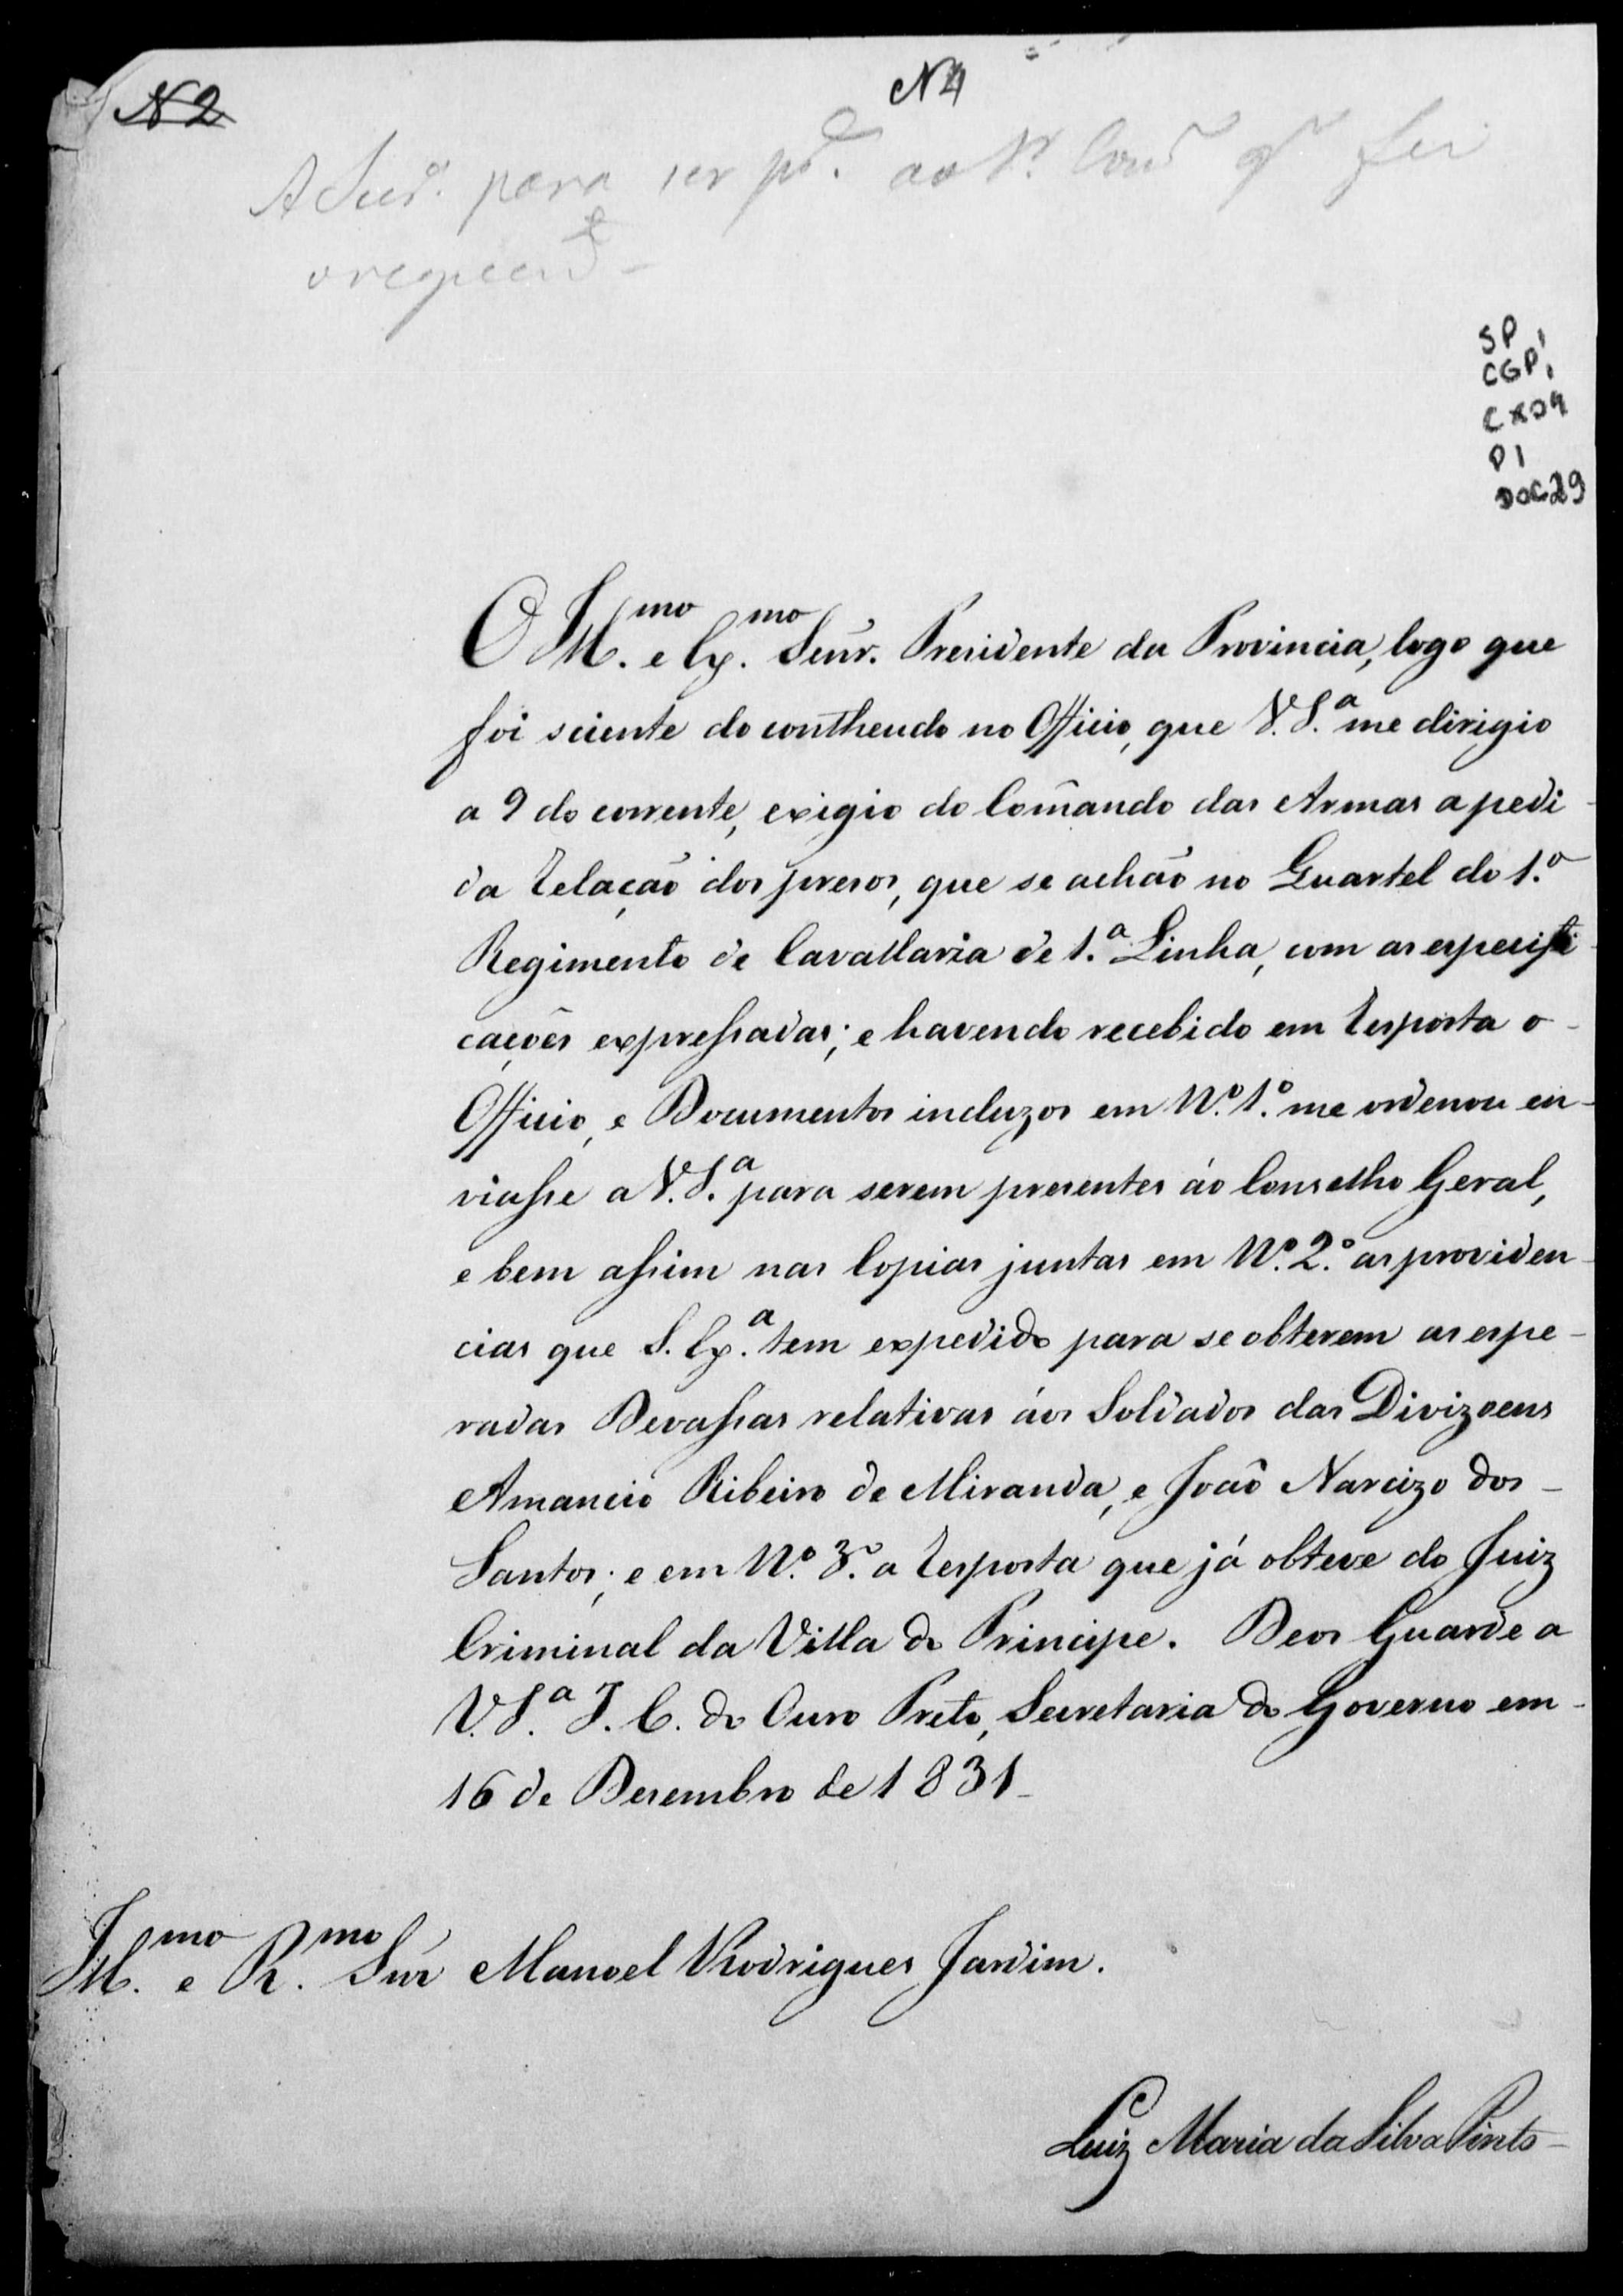 N 2
N 4
A Secr. para ser ao que foi
SP
CGP1
CX09
P1
DOC29
O Ill.mo e Ex.mo Senr. Presidente da Provincia, logo que
foi sciente do contheudo no Officio, que V. S.a me dirigio
a 9 do corrente, exigio do Com̃ando das Armas a pedi-
da relação dos presos, que se achão no Quartel do 1.o
Regimento de Cavallaria de 1.a Linha, com as especifi-
cações expressadas; e havendo recebido em resposta o
Officio, e Documentos incluzos em N.o 1.o me ordenou en-
viasse a V. S.a para serem presentes áo Conselho Geral,
e bem assim nas Copias juntas em N.o 2.o as providen-
cias que S. Ex.a tem expedido para se obterem as espe-
radas Devassas relativas áos Soldados das Divizoens
Amancio Ribeiro de Miranda, e João Narcizo dos
Santos; e em N.o 3.o a resposta que já obteve do Juiz
Criminal da Villa do Principe. Deos Guarde a
V. S.a I. C. do Ouro Preto, Secretaria do Governo em
16 de Desembro de 1831
Ill.mo e R.mo Snr Manoel Rodrigues Jardim.
Luiz Maria da Silva Pinto